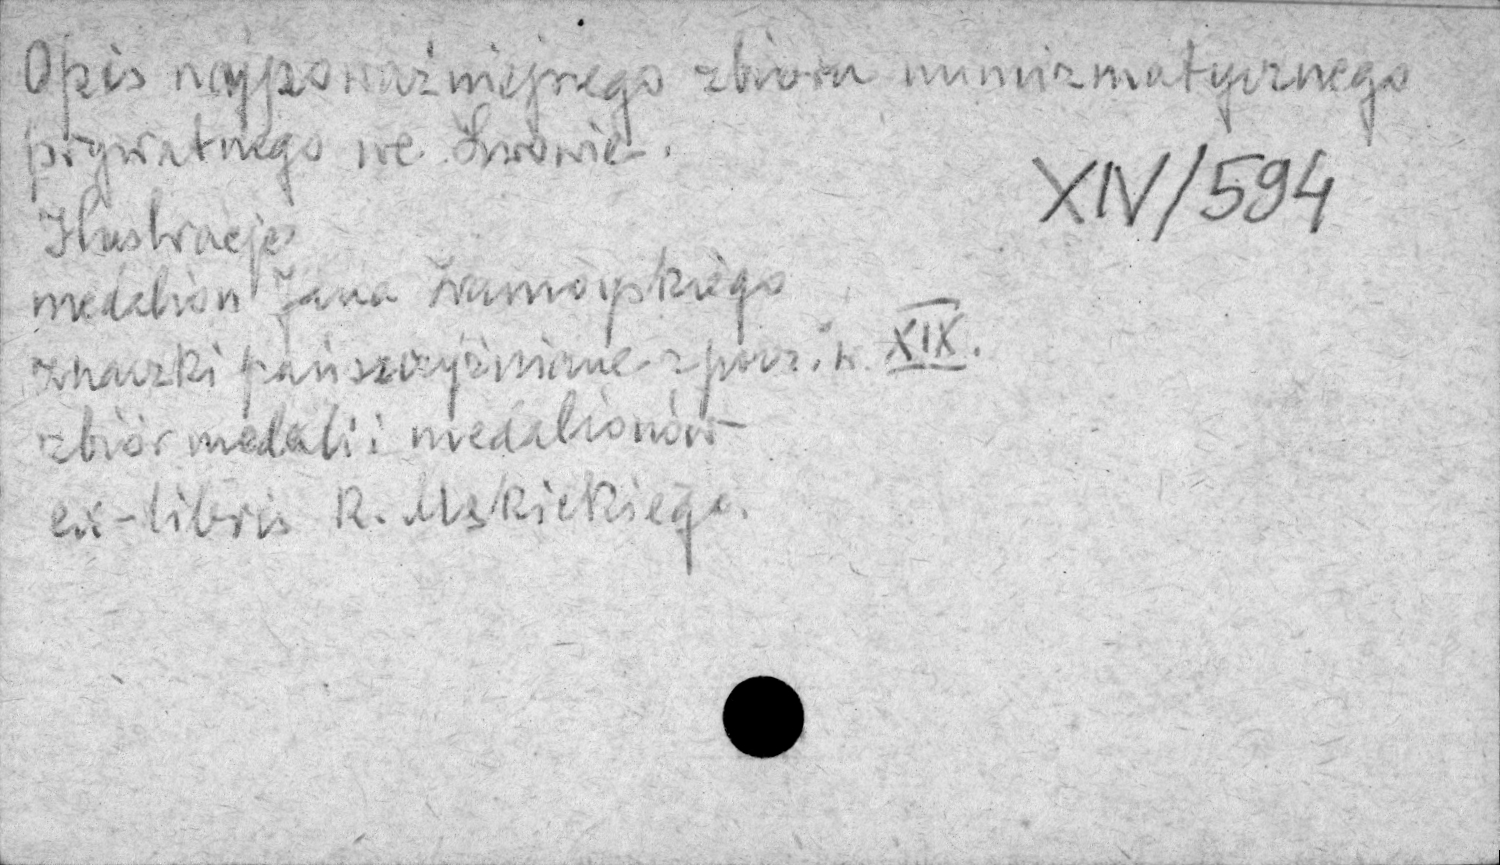 Opis najpoważniejszego zbioru numizmatycznego
prywatnego we Lwowie.
XIV/594
Ilustracje
medalion Jana Zamoyskiego
znaczki pańszczyźniane z pocz. w. XIX.
zbiór medali i medalionów
ex-libris R. Mękickiego.